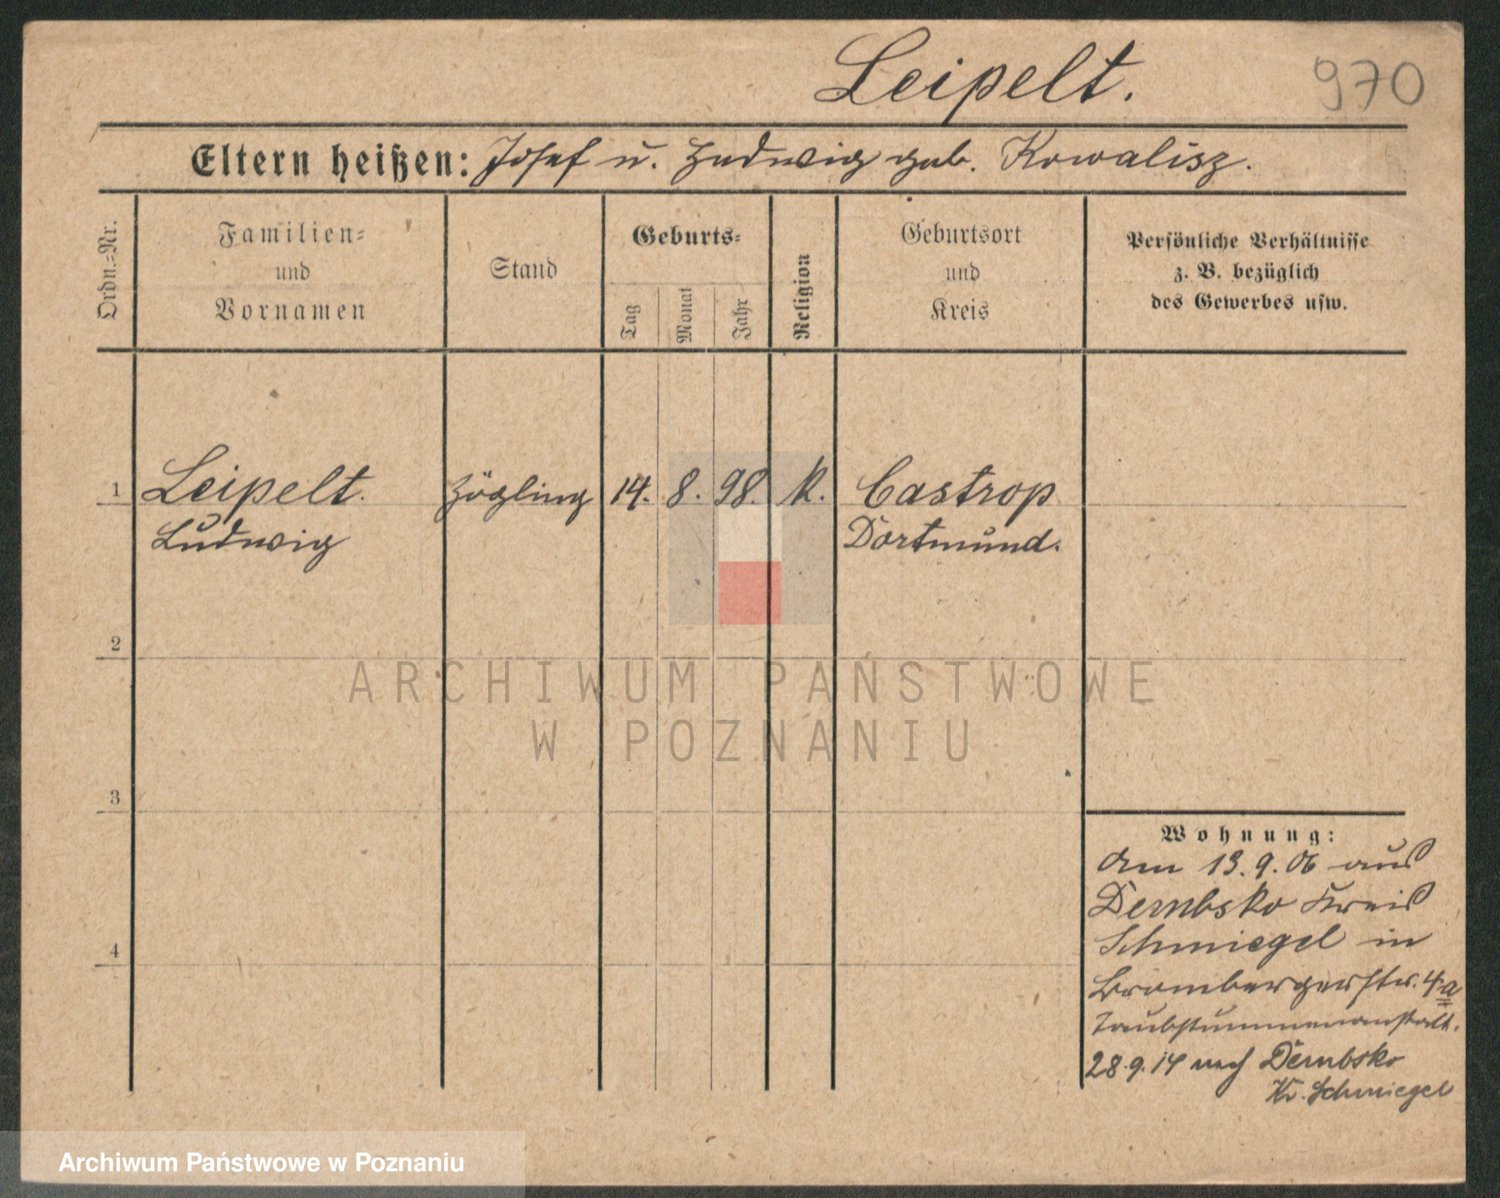 Leipelt.
970
Eltern heißen: Josef u. Hedwig geb. Kowalisz.
Ordn.-Nr.
Familien-
und
Vornamen
Stand
Geburts-
Tag
Monat
Jahr
Religion
Geburtsort
und
Kreis
Persönliche Verhältnisse
z. B. bezüglich
des Gewerbes usw.
1 Leipelt. Zögling 14. 8. 98. k. Castrop
Ludwig Dortmund.
2
3
4
ARCHIWUM PAŃSTWOWE
W POZNANIU
Wohnung:
Am 13.9.06 aus
Dembsko Kreis
Schmiegel in
Brombergerstr. 4a
Taubstummenanstalt.
28.9.14 nach Dembsko
Kr. Schmiegel
Archiwum Państwowe w Poznaniu